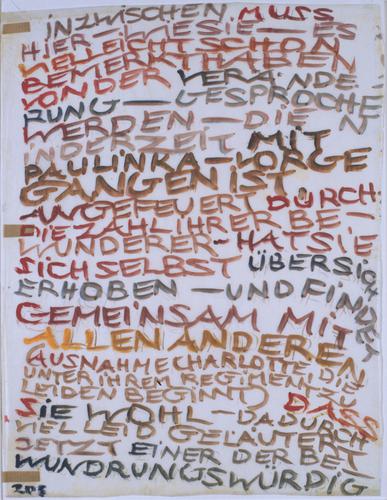 INZWISCHEN MUSS
HIER – WIE SIE – ES
VIELLEICHT SCHON
BEMERKT HABEN
VON DER VERÄNDE
RUNG – GESPROCHE
WERDEN – DIE N
IN DER ZEIT MIT
PAULINKA – VORGE
GANGEN IST.
ANGEFEUERT DURCH
DIE ZAHL IHRER BE –
WUNDERER – HAT SIE
SICH SELBST ÜBER SICH
ERHOBEN – UND FINDET
GEMEINSAM MIT
ALLEN ANDEREN,
AUSNAHME CHARLOTTE, DIE
UNTER IHREM REGIMENT ZU
LEIDEN BEGINNT DASS
SIE WOHL – DADURCH
VIEL LEID GELÄUTERT
JETZT EINER DER BE
WUNDRUNGSWÜRDIG